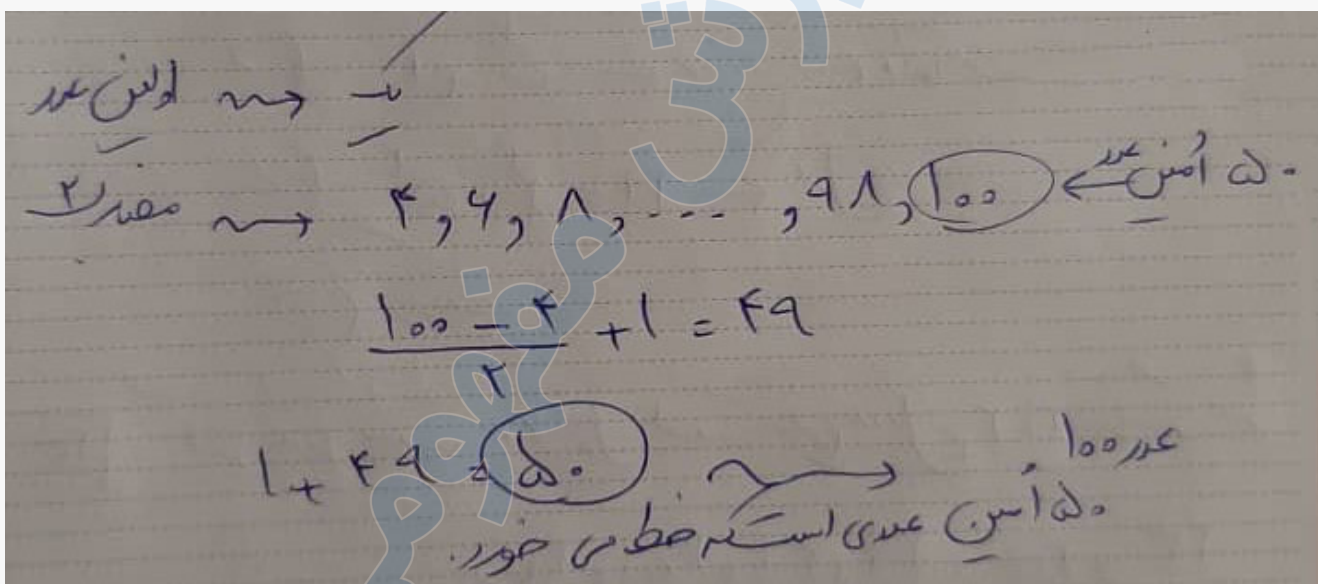 اولین عدد ⟿ یک
مضرب ۲ ⟿ ۴, ۶, ۸, ...., ۹۸, ۱۰۰ ← ۵۰ اُمین عدد
(۱۰۰ - ۴)/۲ + ۱ = ۴۹
۱ + ۴۹ = ۵۰ ⟿ عدد ۱۰۰
۵۰ اُمین عددی است که خط می خورد.